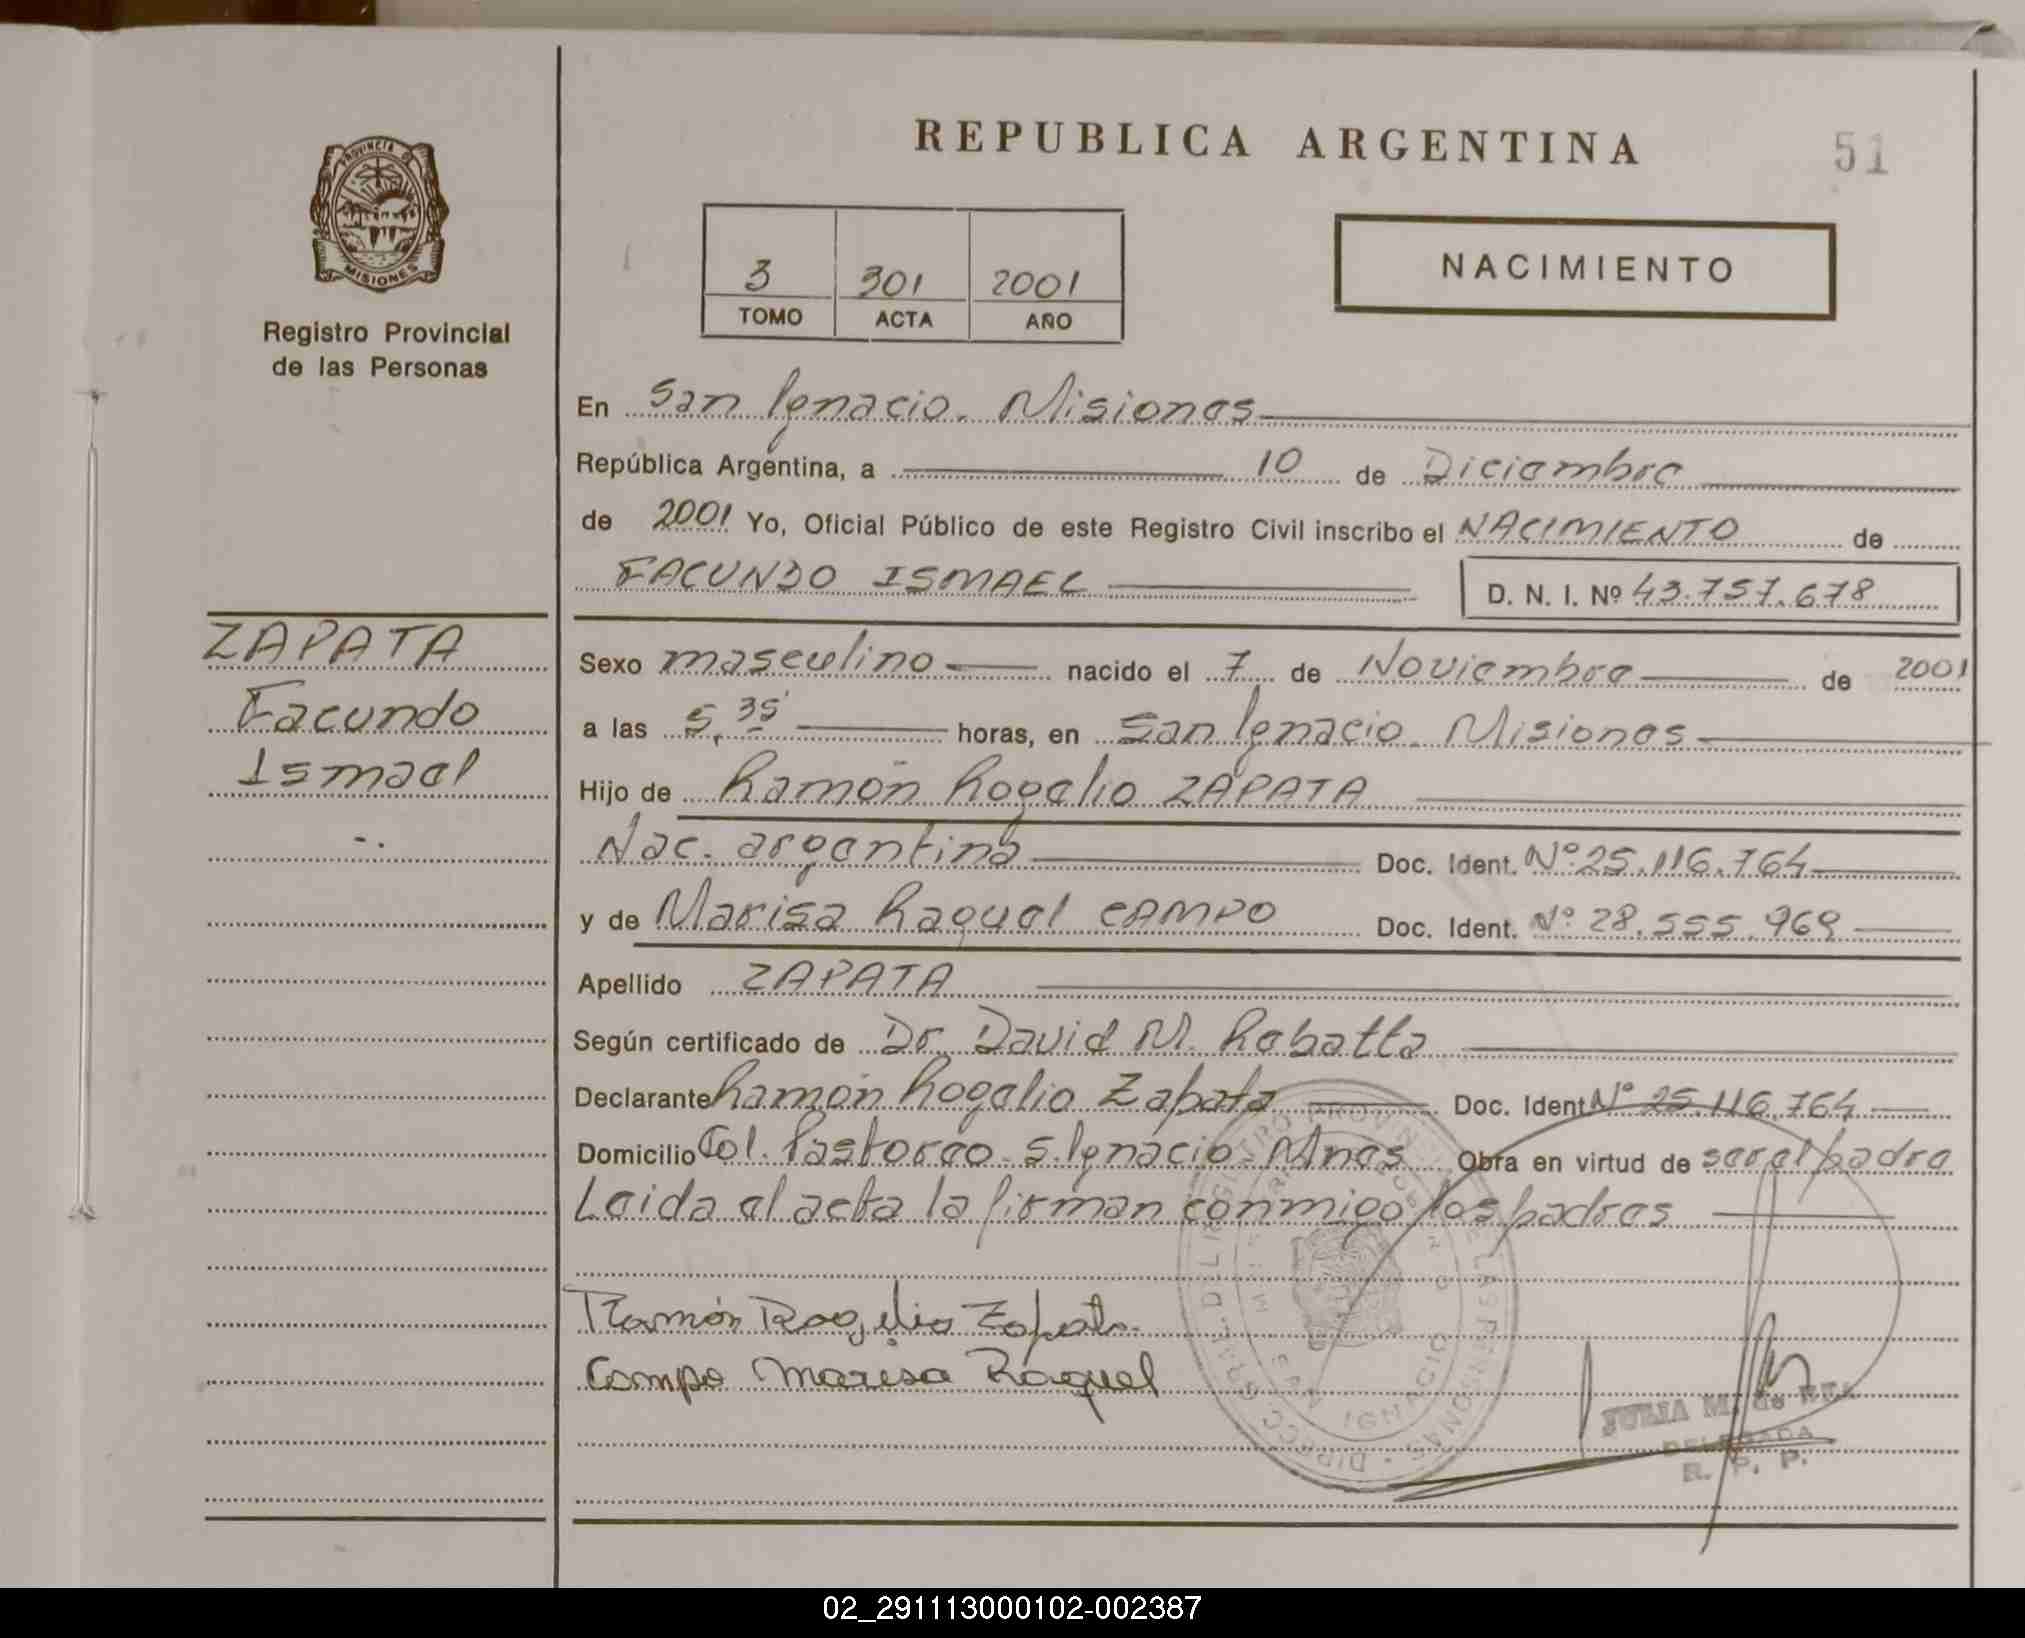 REPUBLICA ARGENTINA
51
PROVINCIA DE
MISIONES
Registro Provincial
de las Personas
3 301 2001
TOMO ACTA AÑO
NACIMIENTO
En San Ignacio. Misiones
República Argentina, a 10 de Diciembre
de 2001 Yo, Oficial Público de este Registro Civil inscribo el NACIMIENTO de
FACUNDO ISMAEL D. N. I. Nº 43.757.678
ZAPATA
Facundo
Ismael
Sexo masculino nacido el 7 de Noviembre de 2001
a las 5,35' horas, en San Ignacio. Misiones
Hijo de Ramón Rogelio ZAPATA
Nac. argentina Doc. Ident. Nº 25.116.764
y de Marisa Raquel CAMPO Doc. Ident. Nº 28.555.969
Apellido ZAPATA
Según certificado de Dr. David M. Rebatta
Declarante Ramón Rogelio Zapata Doc. Ident Nº 25.116.764
Domicilio Col. Pastoreo. S. Ignacio-Mnes Obra en virtud de ser el padre
Leida el acta la firman conmigo los padres
Ramón Rogelio Zapata.
Campo Marisa Raquel
SAN IGNACIO
JULIA M. de
DELEGADA
R. P. P.
02_291113000102-002387